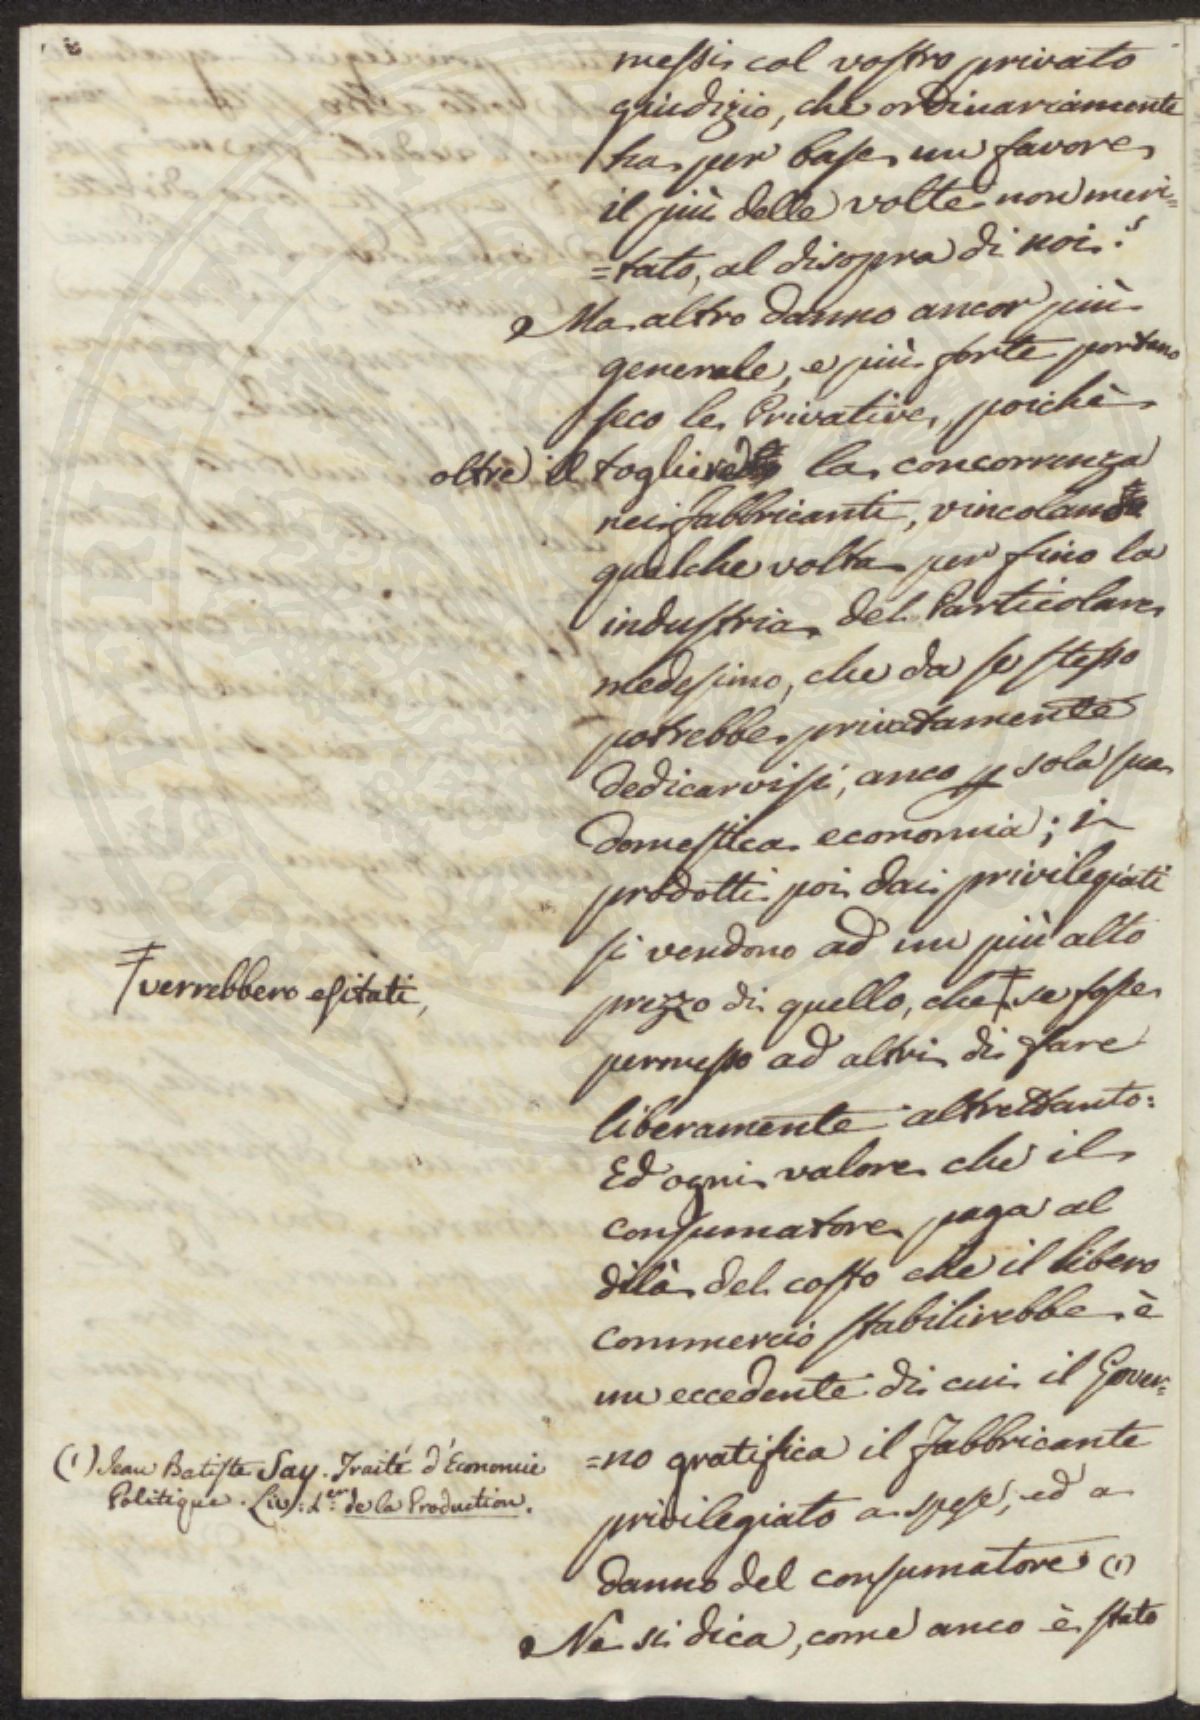 messi col vostro privato
giudizio, che ordinariamente
ha per base un favore
il più delle volte non meri=
=tato, al disopra di noi?
Ma altro danno ancor più
generale, e più forte portano
seco le Privative, poichè
oltre il togliere la concorrenza
nei fabbricanti, vincolano
qualche volta per fino la
industria del Particolare
medesimo, che da se stesso
potrebbe privatamente
dedicarvisi, anco p sola sua
domestica economia; i
prodotti poi dai privilegiati
si vendono ad un più alto
prezzo di quello, che ‡ se fosse
‡ verrebbero esitati,
permesso ad altri di fare
liberamente altrettanto:
Ed ogni valore che il
consumatore paga al
dilà del costo che il libero
commercio stabilirebbe è
un eccedente di cui il Gover=
=no gratifica il fabbricante
privilegiato a spese, ed a
danno del consumatore (1)
(1) Jean Batiste Say. Traité d'Economie
Politique. Liv: 1.er de la Production.
Ne si dica, come anco è stato